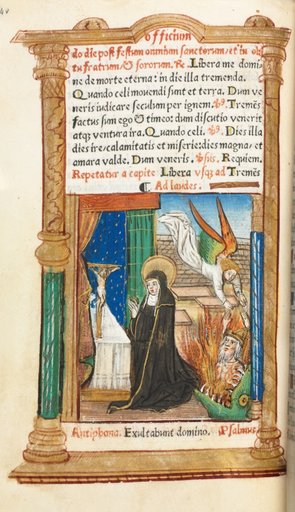 Officium
do die post festum omnium sanctorum/et in obi
tu fratrum/& sororum. Re. Libera me domi/
ne de morte eterna: in die illa tremenda.
Quando celi movendi sunt et terra. Dum ve
neris iudicare seculum per ignem. Tremēs
factus sum ego & timeo: dum discutio venerit
atqȝ ventura ira. Quando celi. Dies illa
dies ire/calamitatis et miserie: dies magna/et
amara valde. Dum veneris. Requiem.
Repetatur a capite Libera usqȝ ad Tremēs
¶ Ad laudes.
Antiphona. Exultabunt domino. Psalmus